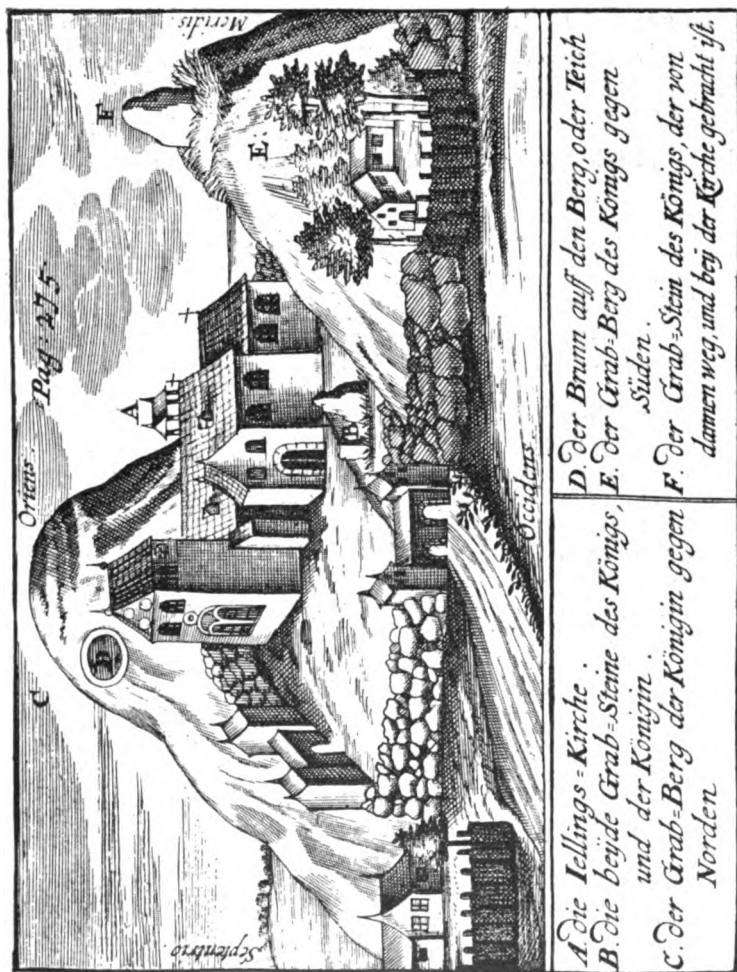 Pag: 275.
Septentrio.
Oriens.
Meridis.
C
F
A
E.
B
D
Occidens.
A. die Iellings=Kirche.
B. die beyde Grab=Steine des Königs,
und der Königin.
C. der Grab=Berg der Königin gegen
Norden
D. der Brunn auff den Berg, oder Teich
E. der Grab=Berg des Königs gegen
Süden.
F. der Grab=Stein des Königs, der von
dannen weg, und bey der Kirche gebracht ist.